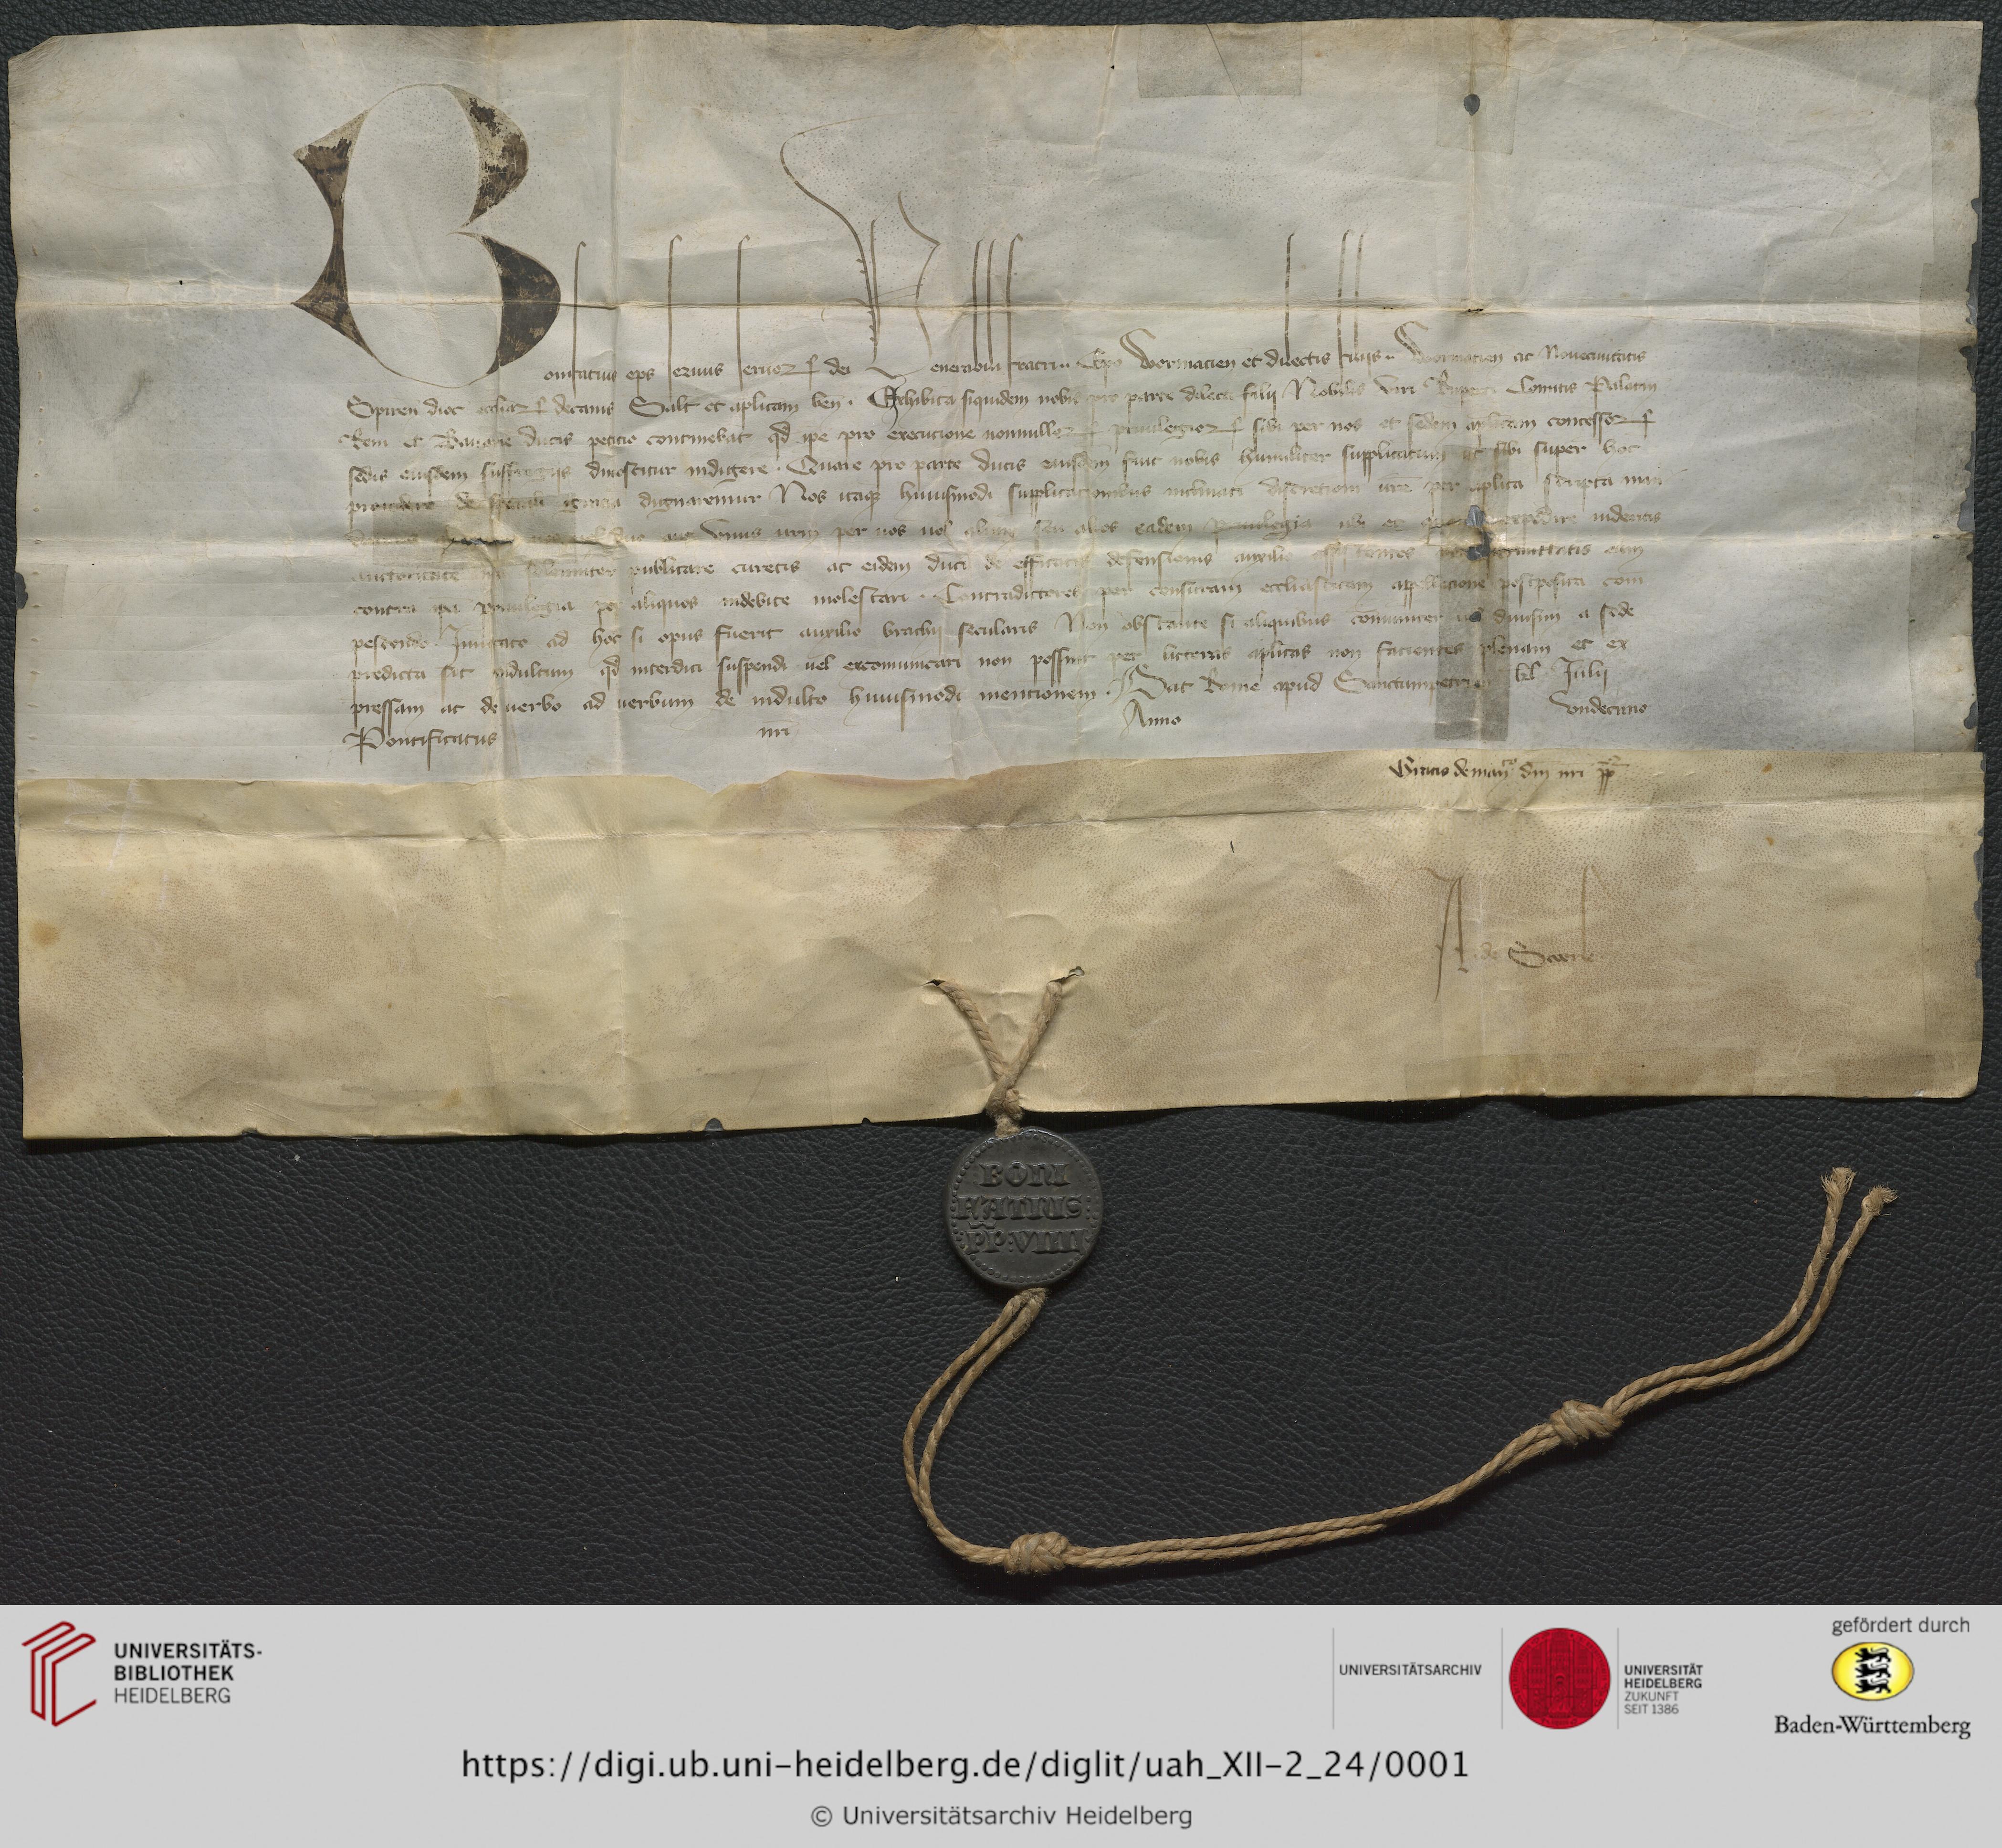 Bonifatius eps seruus seruor dei Venerabili fratri Epo Wormacien et dilectis filijs Wormacien ac Nouecivitatis
Spiren dioc ecclesiar decanis Salt et aplicam ben. Exhibita siquidem nobis pro parte dilecti filij Nobilis viri Ruperti Comitis Palatin
Reni et Bauarie ducis peticio continebat qd ipe pro execucione nonnullor priuilegior sibi per nos et sedem aplicam concessor
sedis eiusdem suffragijs dinoscitur indigere. Quare pro parte ducis eiusdem fuit nobis humiliter supplicatum ut sibi super hoc
prouidere de speciali gracia dignaremur Nos itaqz huiusmodi supplicacionibus inclinati discretioni vre per aplica scripta man
vos vel duo aut vnus vrm per vos uel alium seu alios eadem priuilegia ubi et expedire uideritis
auctoritate nra solenniter publicare curetis ac eidem duci de efficacis defensionis auxilio assistentes non permittatis eum
contra ipa priuilegia per aliquos indebite molestari. Contradictores per censuram ecclesiasticam appellacione postposita com
pescendo Inuocato ad hoc si opus fuerit auxilio brachij secularis Non obstante si aliquibus communiter uel diuisim a sede
predicta sit indultum qd interdici suspendi uel excommunicari non possint per litteras aplicas non facientes plenam et ex
pressam ac de uerbo ad uerbum de indulto huiusmodi mentionem. Dat Rome apud Sanctumpetrum kl Julij
Pontificatus nri Anno vndecimo
Gratis de man dni nri pp
A de
BONI
FATIUS
PP: VIIII
UNIVERSITÄTS-
BIBLIOTHEK
HEIDELBERG
UNIVERSITÄTSARCHIV
UNIVERSITÄT
HEIDELBERG
ZUKUNFT
SEIT 1386
gefördert durch
Baden-Württemberg
https://digi.ub.uni-heidelberg.de/diglit/uah_XII-2_24/0001
© Universitätsarchiv Heidelberg